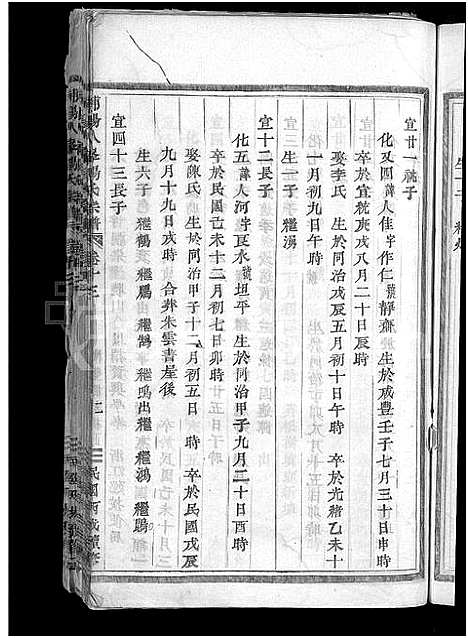 宜廿一祧子
化又四 諱人佳字作仁號靜齋 生於咸豐壬子七月三十日申時
卒於宣統庚戌八月二十日辰時
娶李氏 生於同治戊辰五月初十日午時 卒於光緒乙未十
一月初九日午時
生一子 繼湯
宜十二長子
化五 諱人河字辰水號坦平 生於同治甲子九月二十日酉時
卒於民國己未十二月初七日卯時
娶陳氏 生於同治甲子十二月初五日 時 卒於民國戊辰
九月十九日戌時 合葬朱雲書崖後
生六子 繼鶴 繼鵬 繼鵠 繼鳴出繼 繼鴻 繼鵰
宜四十三長子
楊氏宗譜 卷十三
民國丙戌續修